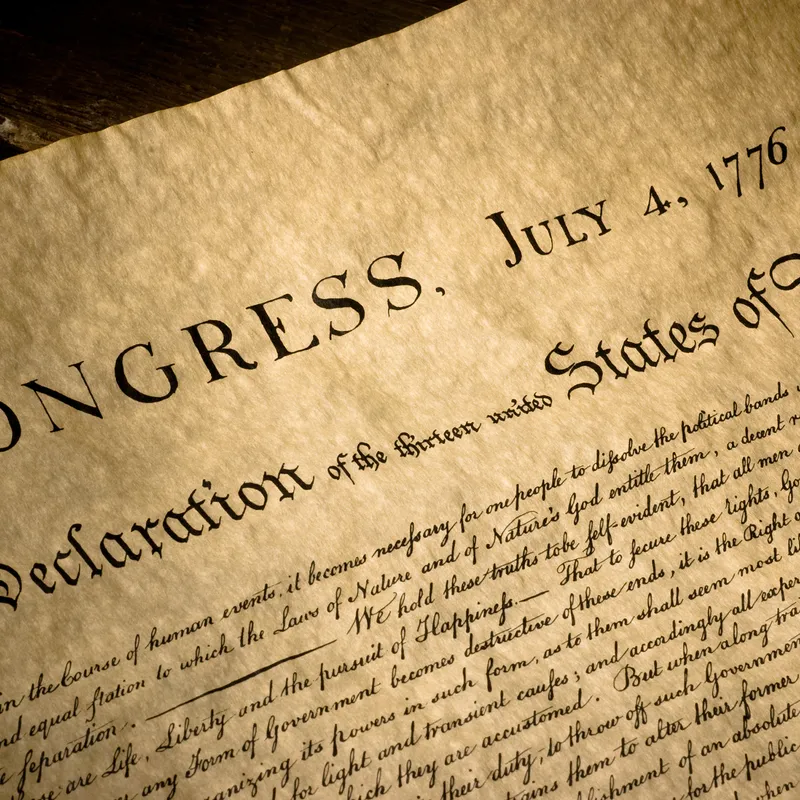 ONGRESS, JULY 4, 1776
Declaration of the thirteen united States of
in the Course of human events, it becomes necessary for one people to dissolve the political bands
nd equal station to which the Laws of Nature and of Nature's God entitle them, a decent
e separation. — We hold these truths to be self-evident, that all men
se are Life, Liberty and the pursuit of Happiness. — That to secure these rights, Go
any Form of Government becomes destructive of these ends, it is the Right
ganizing its powers in such form, as to them shall seem most li
for light and transient causes; and accordingly all exper
hich they are accustomed. But when a long tra
their duty, to throw off such Government
ains them to alter their former
blishment of an absolute
for the public
when